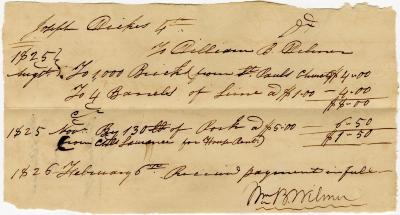 Joseph Dickes Dr
To William B. Wilmer
1825
August To 1,000 Brick from St Pauls Church $4.00
To 4 Barrels of Lime a $1.00 - 4.00
$8.00
1825 Nov. By 130 lb of Pork a $5.00 6-50
from Coll Lawrence for House Rent $1-50
1826 February 6th Received payment in full
Wm B Wilmer